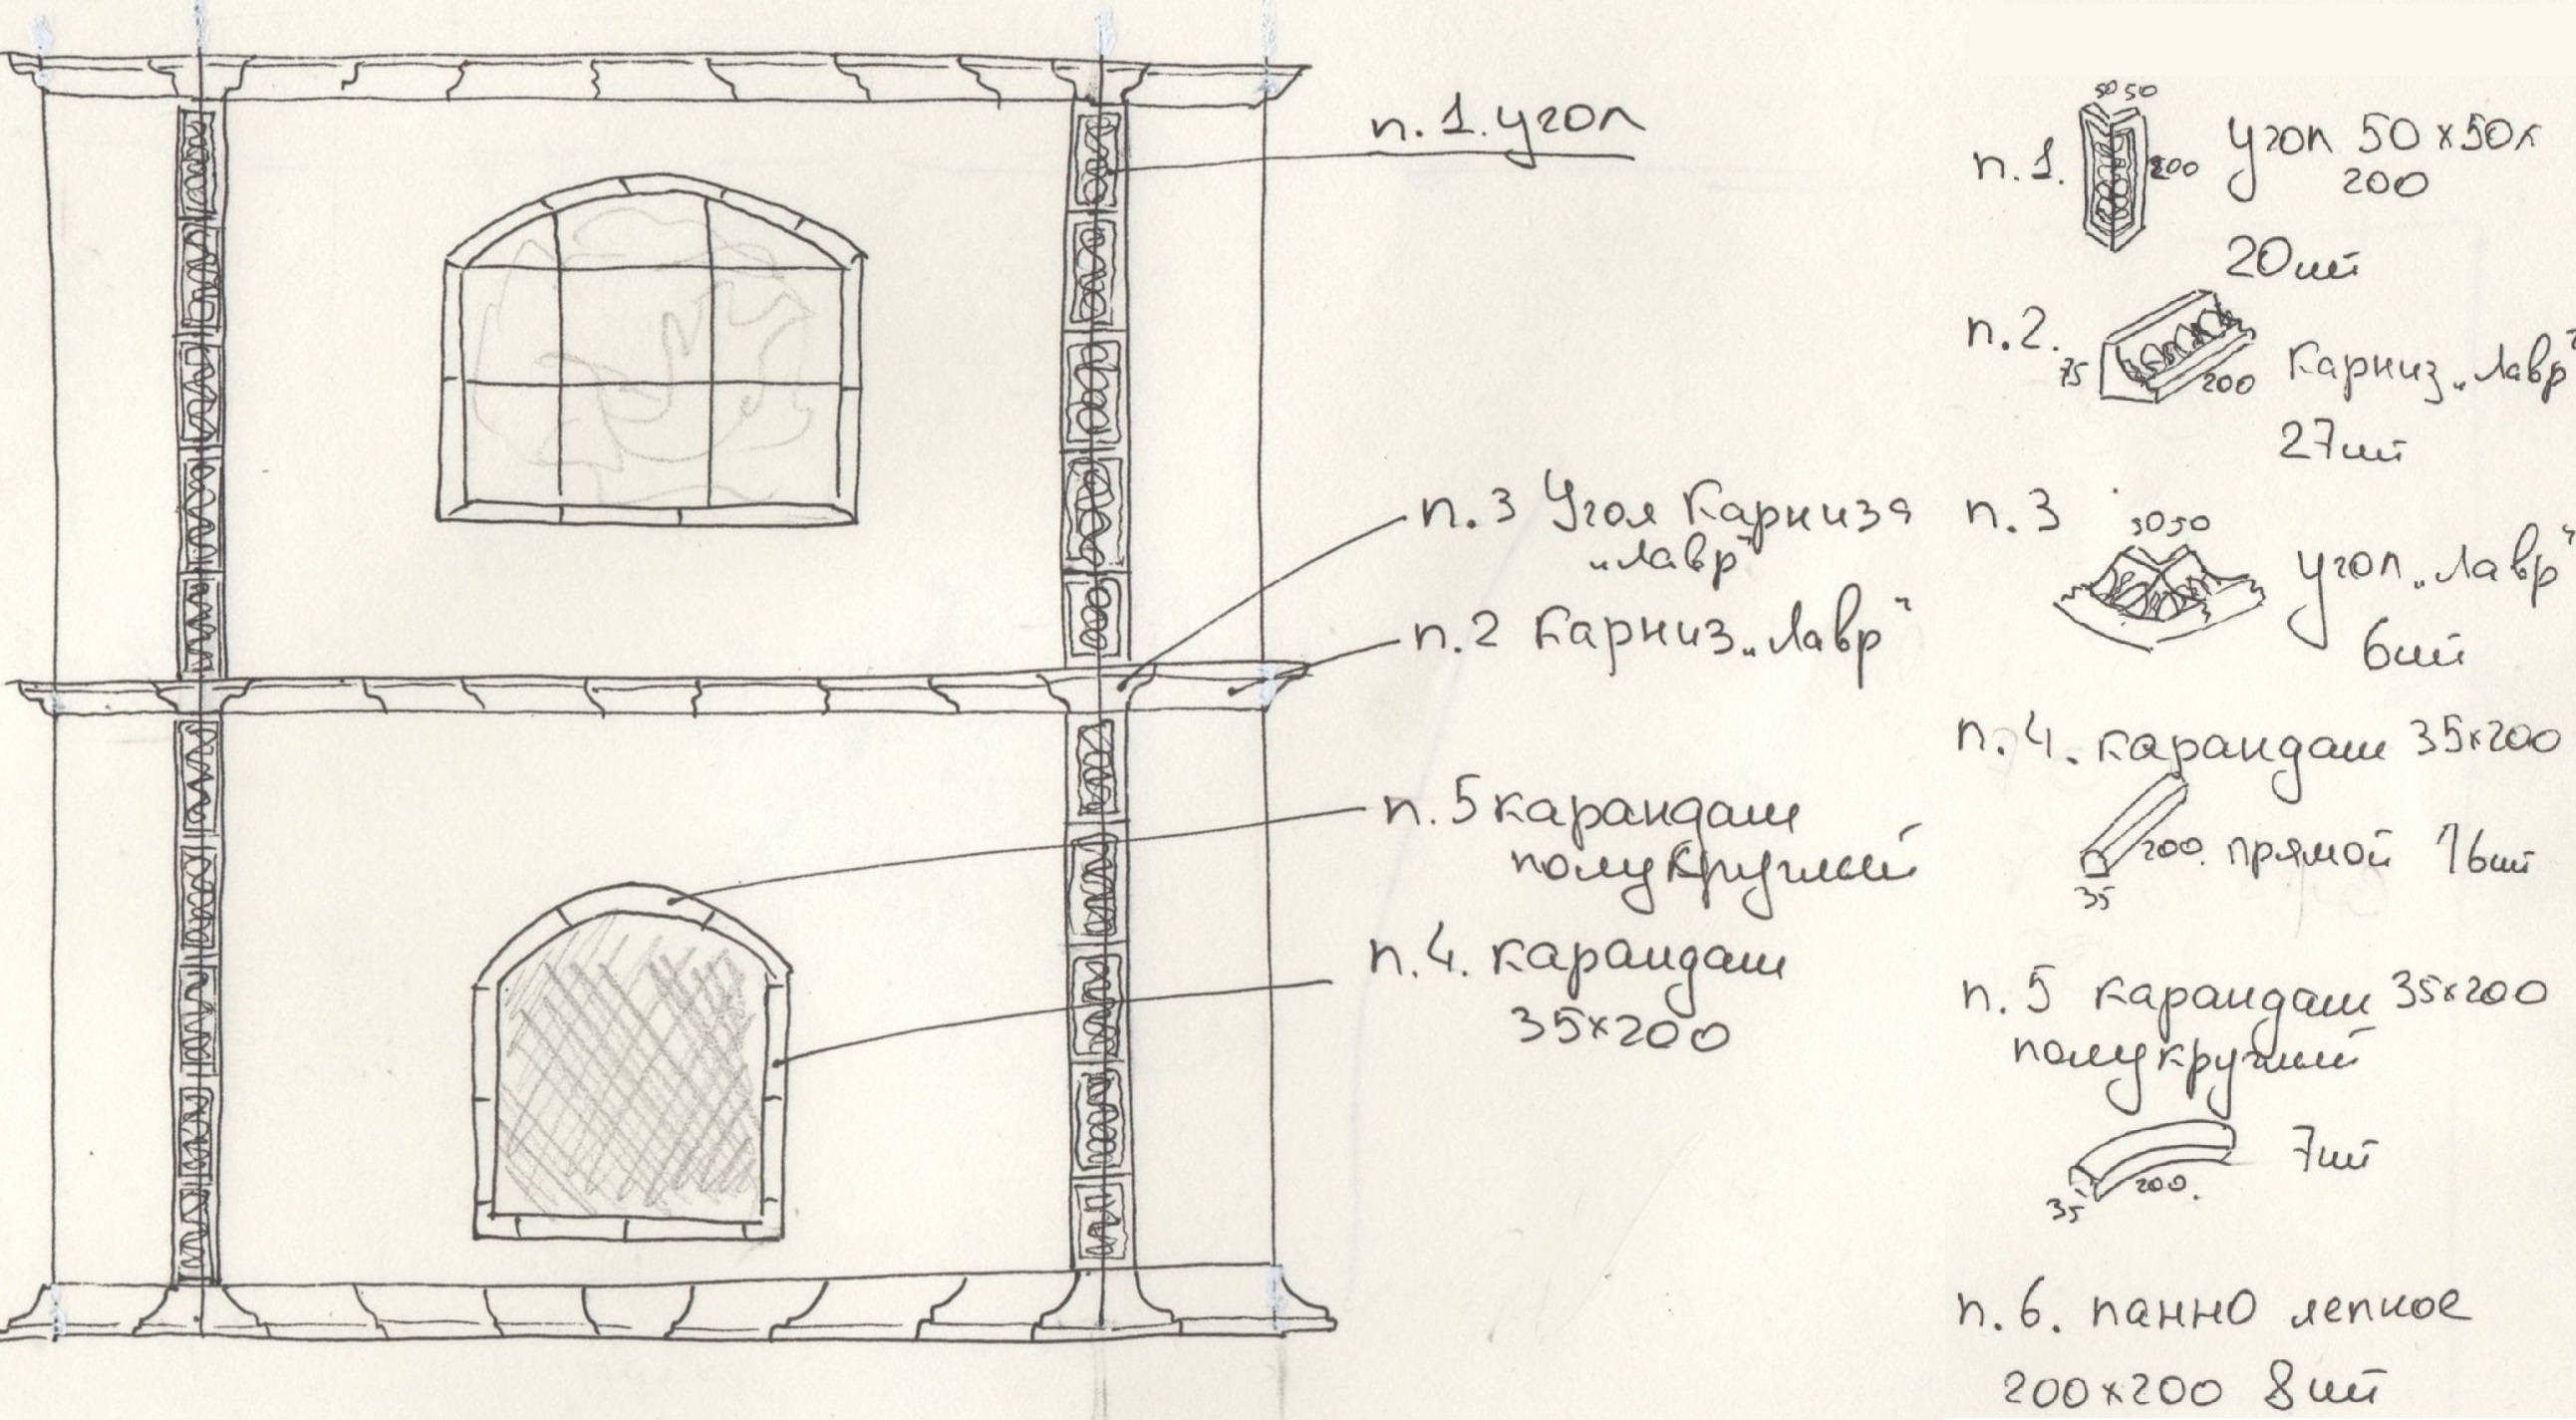 п. 1. угол
п. 3 Угол карниза
„Лавр"
п. 2 Карниз „Лавр"
п. 5 карандаш
полукруглый
п. 4. карандаш
35х200
50 50
п. 1.
200
угол 50х50х
200
20шт
п. 2.
75
200
Карниз „Лавр"
27шт
п. 3
5050
угол „Лавр"
6шт
п. 4. карандаш 35х200
200. прямой 16шт
35
п. 5 карандаш 35х200
полукруглый
7шт
35
200.
п. 6. панно лепное
200х200 8шт